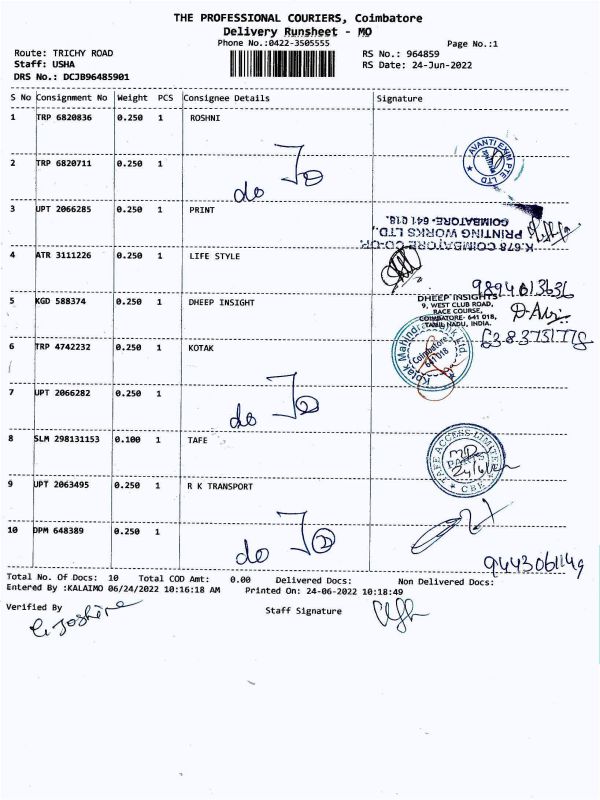 THE PROFESSIONAL COURIERS, Coimbatore
Delivery Runsheet - MO
Phone No.:0422-3505555
Page No.:1
Route: TRICHY ROAD
RS No.: 964859
Staff: USHA
RS Date: 24-Jun-2022
DRS No.: DCJB96485901
S No Consignment No Weight PCS Consignee Details Signature
1 TRP 6820836 0.250 1 ROSHNI
AVANTI EXIM PTE. LTD
2 TRP 6820711 0.250 1
do
3 UPT 2066285 0.250 1 PRINT
K.678 COIMBATORE CO-OP.
PRINTING WORKS LTD.,
COIMBATORE- 641 018.
4 ATR 3111226 0.250 1 LIFE STYLE
9894613636
5 KGD 588374 0.250 1 DHEEP INSIGHT
DHEEP INSIGHTS
9, WEST CLUB ROAD,
RACE COURSE,
COIMBATORE- 641 018,
TAMIL NADU, INDIA.
6383731778
6 TRP 4742232 0.250 1 KOTAK
Kotak Mahindra Bank Ltd
Coimbatore
641 018
7 UPT 2066282 0.250 1
do
8 SLM 298131153 0.100 1 TAFE
TAFE ACCESS LIMITED
CBE
9 UPT 2063495 0.250 1 R K TRANSPORT
10 DPM 648389 0.250 1
do
9443061149
Total No. Of Docs: 10 Total COD Amt: 0.00 Delivered Docs: Non Delivered Docs:
Entered By :KALAIMO 06/24/2022 10:16:18 AM Printed On: 24-06-2022 10:18:49
Verified By Staff Signature